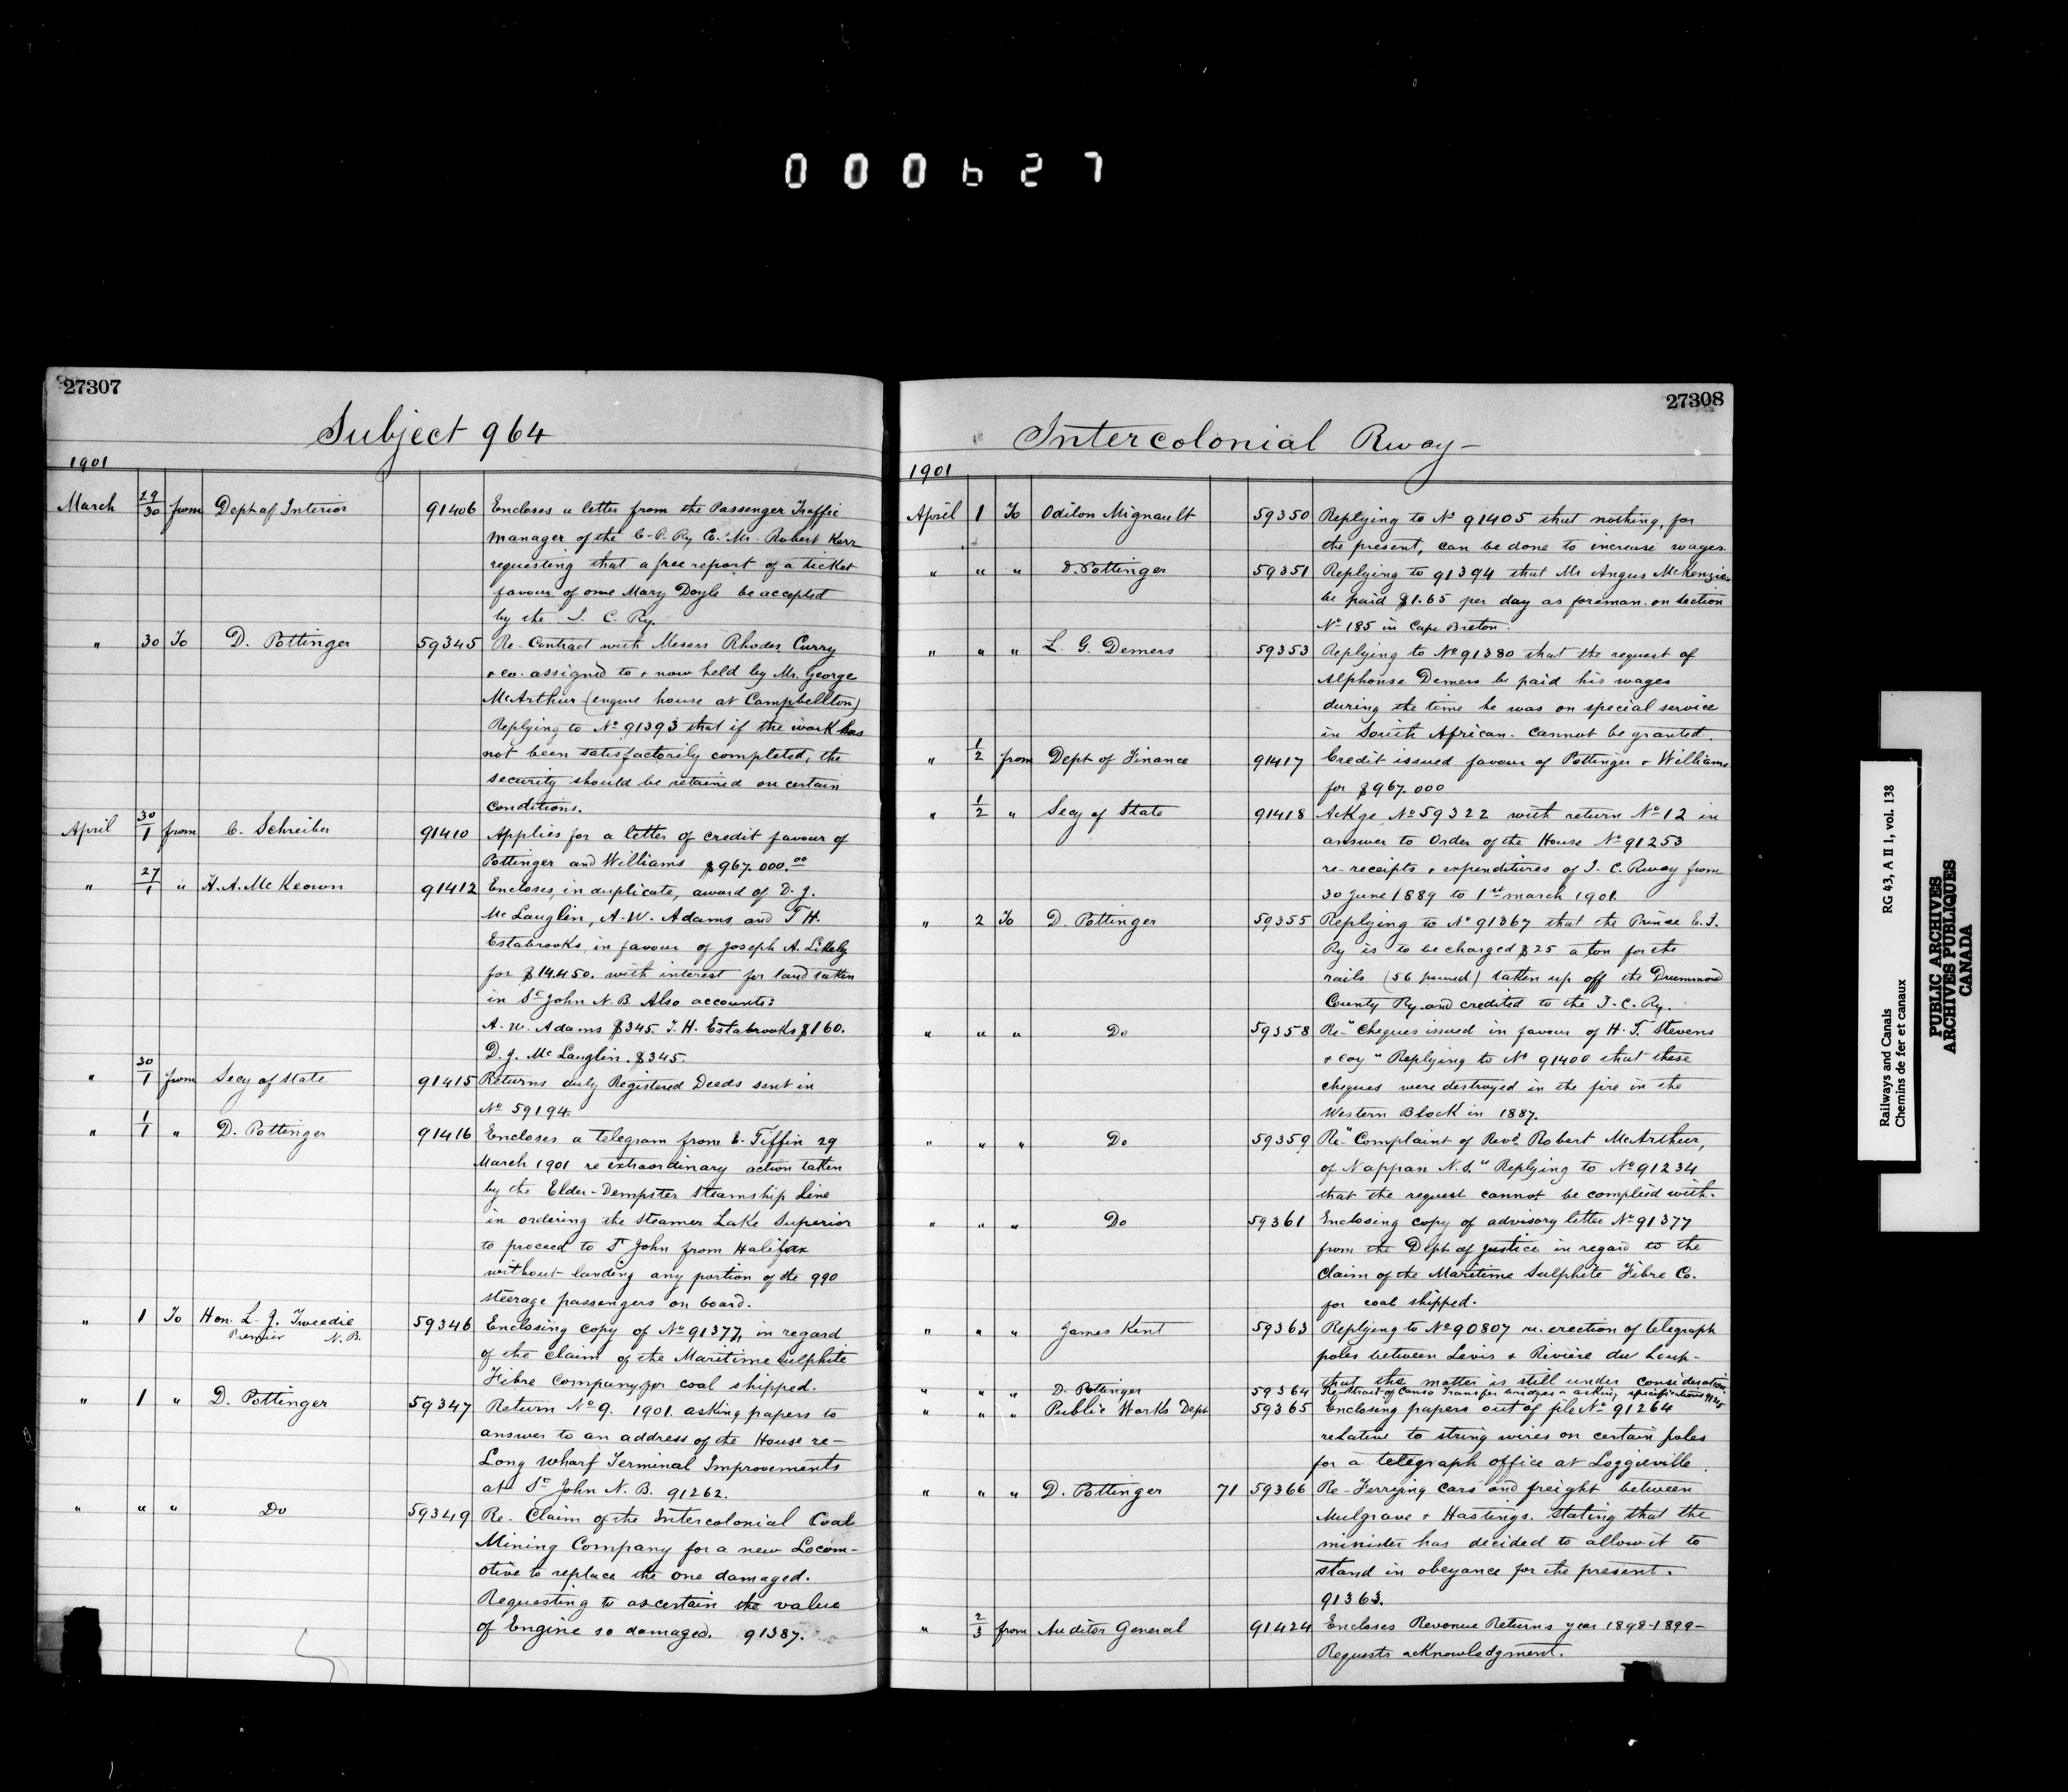 000627
27307
Subject 964
1901
March 29/30 from Dept of Interior 91406 Encloses a letter from the Passenger Traffic
manager of the C.P. Ry Co. Mr. Robert Kerr
requesting that a free report of a ticket
favour of one Mary Doyle be accepted
by the I. C. Ry.
" 30 To D. Pottinger 59345 Re- Contract with Messrs Rhodes Curry
& co. assigned to & now held by Mr. George
McArthur (engine house at Campbellton)
Replying to No 91393 that if the work has
not been satisfactorily completed, the
security should be retained on certain
conditions.
April 30/1 from C. Schreiber 91410 Applies for a letter of credit favour of
Pottinger and Williams $967.000.00
" 27/1 " H. A. McKeown 91412 Encloses, in duplicate, award of D. J.
McLauglin, A. W. Adams and T. H.
Estabrooks in favour of Joseph A. Likely
for $14.450. with interest for land taken
in St John N. B. Also accounts:
A. W. Adams $345. T. H. Estabrooks $160.
D. J. McLauglin. $345.
" 30/1 from Secy of State 91415 Returns duly Registered Deeds sent in
No 59194.
" 1/1 " D. Pottinger 91416 Encloses a telegram from E. Tiffin 29
March 1901 re extraordinary action taken
by the Elder-Dempster Steamship Line
in ordering the Steamer Lake Superior
to proceed to St John from Halifax
without landing any portion of the 990
steerage passengers on board.
" 1 To Hon. L. J. Tweedie 59346 Enclosing copy of No 91377, in regard
Premier N. B.
of the claim of the Maritime Sulphite
Fibre Company for coal shipped.
" 1 " D. Pottinger 59347 Return No 9. 1901. asking papers to
answer to an address of the House re-
Long Wharf Terminal Improvements
at St John N. B. 91262.
" " " Do 59349 Re- Claim of the Intercolonial Coal
Mining Company for a new Locom-
otive to replace the one damaged.
Requesting to ascertain the value
of Engine so damaged. 91387.
27308
Intercolonial Rway-
1901
April 1 To Odilon Mignault 59350 Replying to No 91405 that nothing, for
the present, can be done to increase wages.
" " " D. Pottinger 59351 Replying to 91394 that Mr Angus McKenzie
be paid $1.65 per day as foreman on section
No 185 in Cape Breton.
" " " L. G. Demers 59353 Replying to No 91380 that the request of
Alphonse Demers be paid his wages
during the time he was on special service
in South African- cannot be granted.
" 1/2 from Dept of Finance 91417 Credit issued favour of Pottinger & Williams
for $967.000
" 1/2 " Secy of State 91418 Ackge No 59322 with return No 12 in
answer to Order of the House No 91253
re- receipts & expenditures of I. C. Rway from
30 June 1889 to 1st march 1901.
" 2 To D. Pottinger 59355 Replying to No 91367 that the Prince E. I.
Ry is to be charged $25 a ton for the
rails (56 pound) taken up off the Drummond
County Ry. and credited to the I. C. Ry.
" " " Do 59358 Re- "Cheques issued in favour of H. T. Stevens
& coy" Replying to No 91400 that these
cheques were destroyed in the fire in the
Western Block in 1887.
" " " Do 59359 Re "Complaint of Revd. Robert McArthur,
of Nappan N.S." Replying to No 91234
that the request cannot be complied with.
" " " Do 59361 Enclosing copy of advisory letter No 91377
from the Dept of Justice in regard to the
Claim of the Maritime Sulphite Fibre Co.
for coal shipped.
" " " James Kent 59363 Replying to No 90807 re. erection of telegraph
poles between Levis & Rivière du Loup-
that the matter is still under consideration.
" " " D. Pottinger 59364 Re- Strait of Canso Transfer bridges - asking specifications
" " " Public Works Dept 59365 Enclosing papers out of file No 91264
relative to string wires on certain poles
for a telegraph office at Loggieville.
" " " D. Pottinger 71 59366 Re- Ferrying cars and freight between
Mulgrave & Hastings. Stating that the
minister has decided to allow it to
stand in obeyance for the present.
91363.
" 2/3 from Auditor General 91424 Encloses Revenue Returns year 1898-1899-
Requests acknowledgment.
Railways and Canals RG 43, A II 1, vol. 138
Chemins de fer et canaux
PUBLIC ARCHIVES
ARCHIVES PUBLIQUES
CANADA